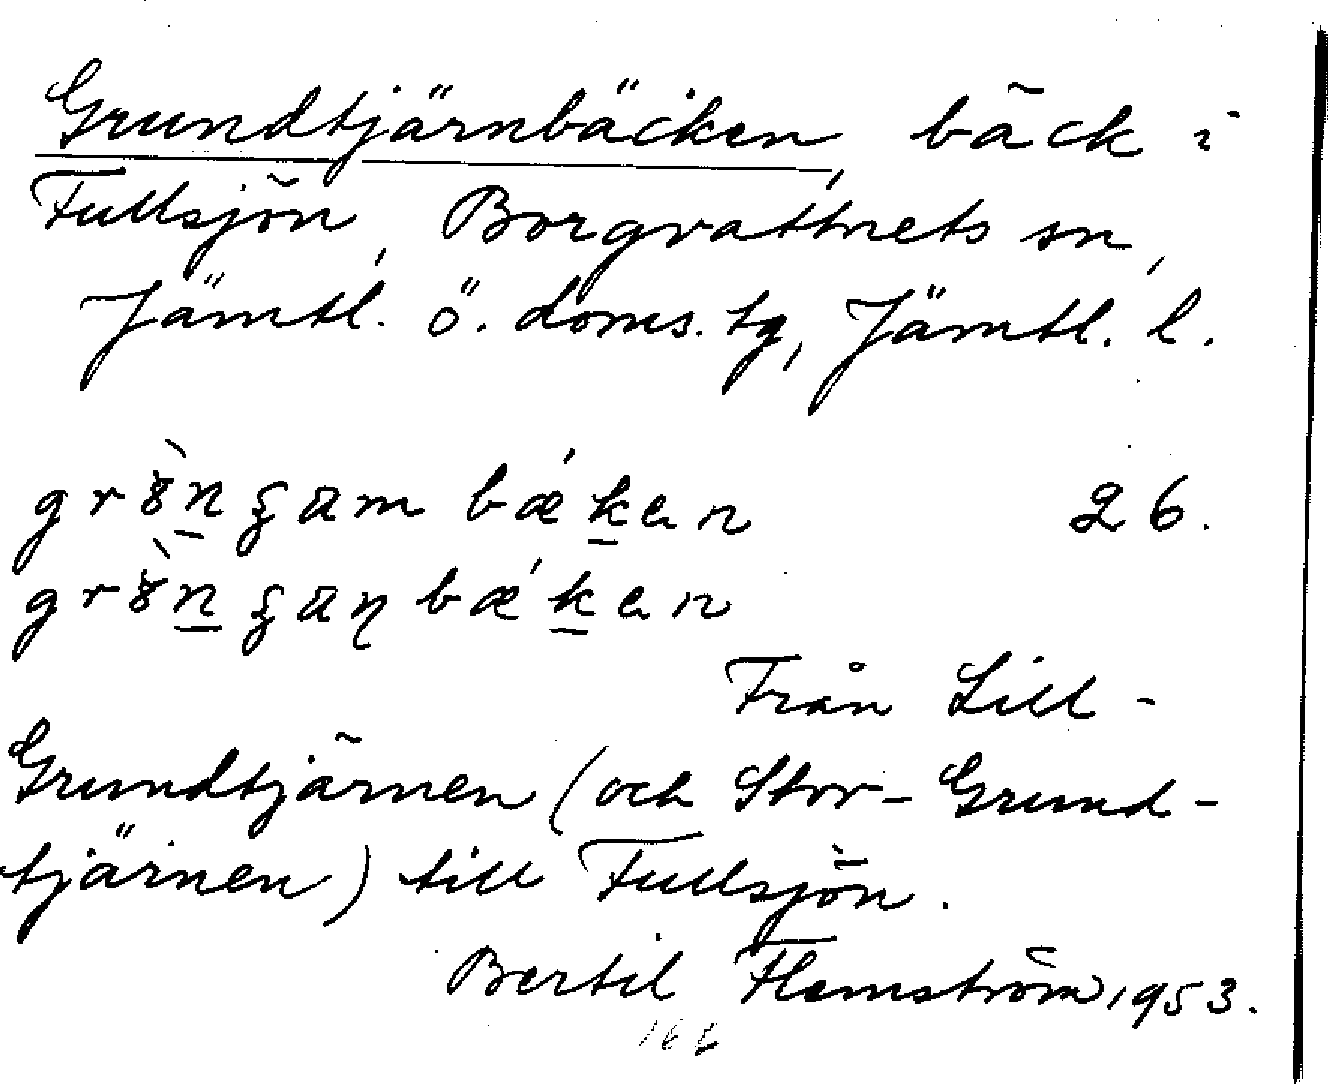 Grundtjärnbäcken, bäck i
Fullsjön, Borgvattnets sn,
Jämtl. ö. doms. tg, Jämtl. l.
26.
Från Lill-
Grundtjärnen (och Stor-Grund-
tjärnen) till Fullsjön.
Bertil Flemström 1953.